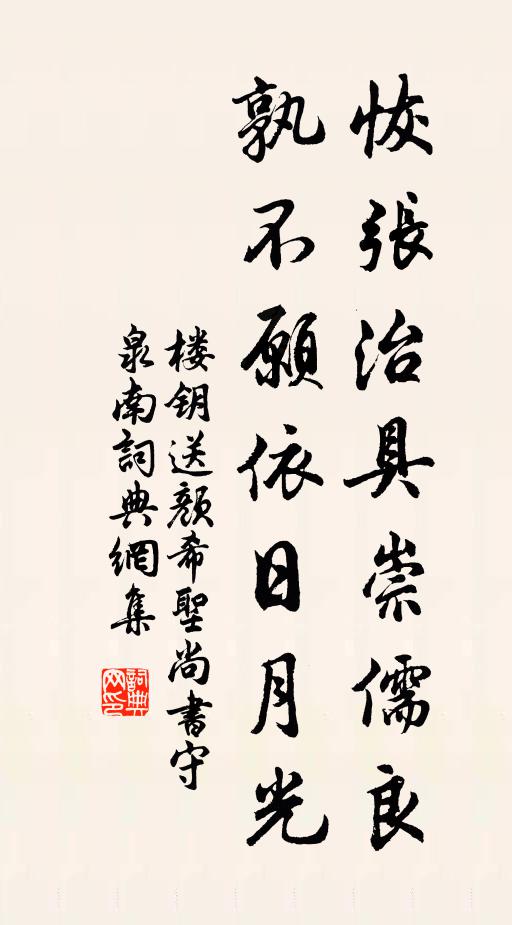 恢張治具崇儒良
孰不願依日月光
楼钥送颜希聖尚書守
泉南詞典網集
詞典
网印